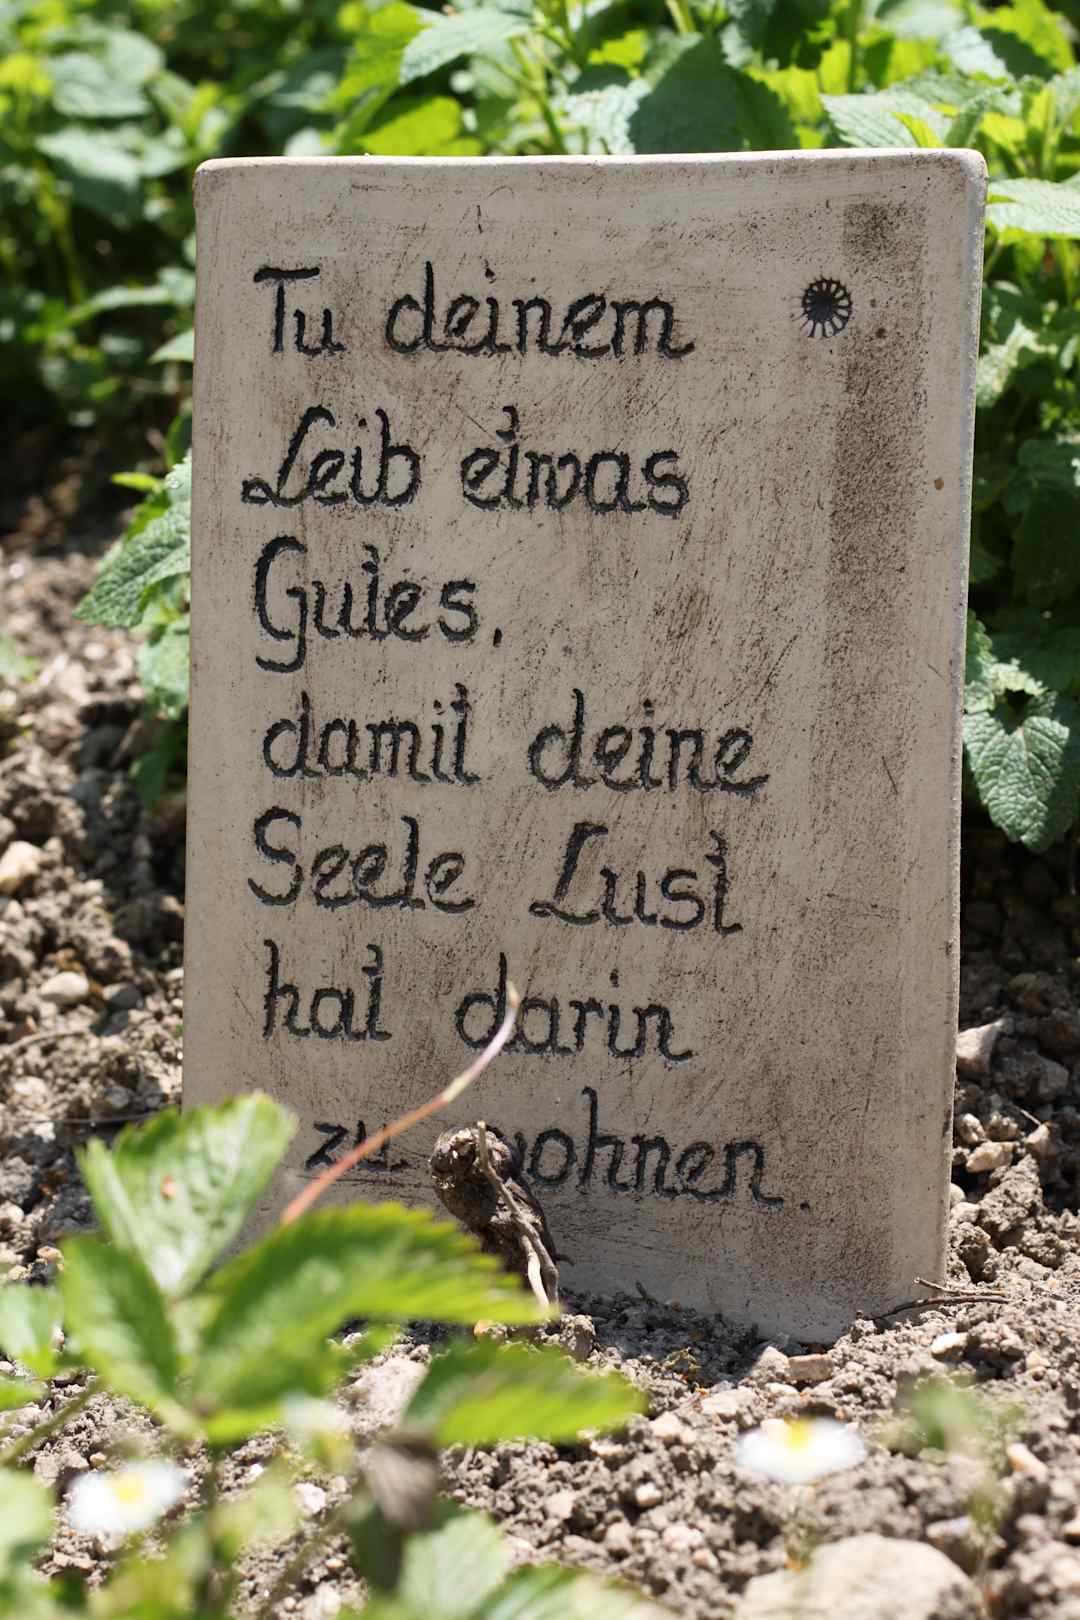 Tu deinem
Leib etwas
Gutes,
damit deine
Seele Lust
hat darin
zu wohnen.